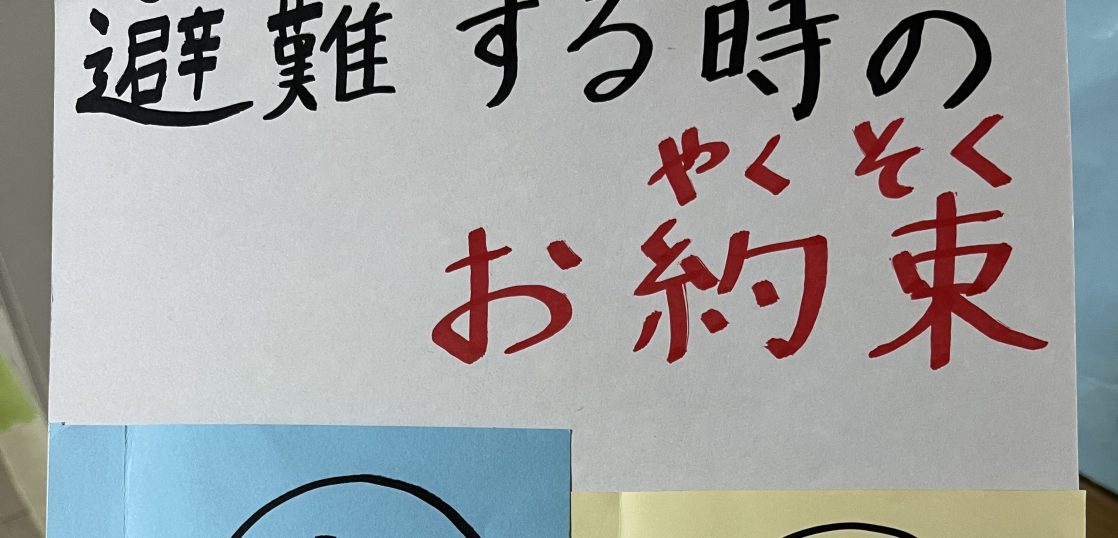 避難する時の
やくそく
お約束